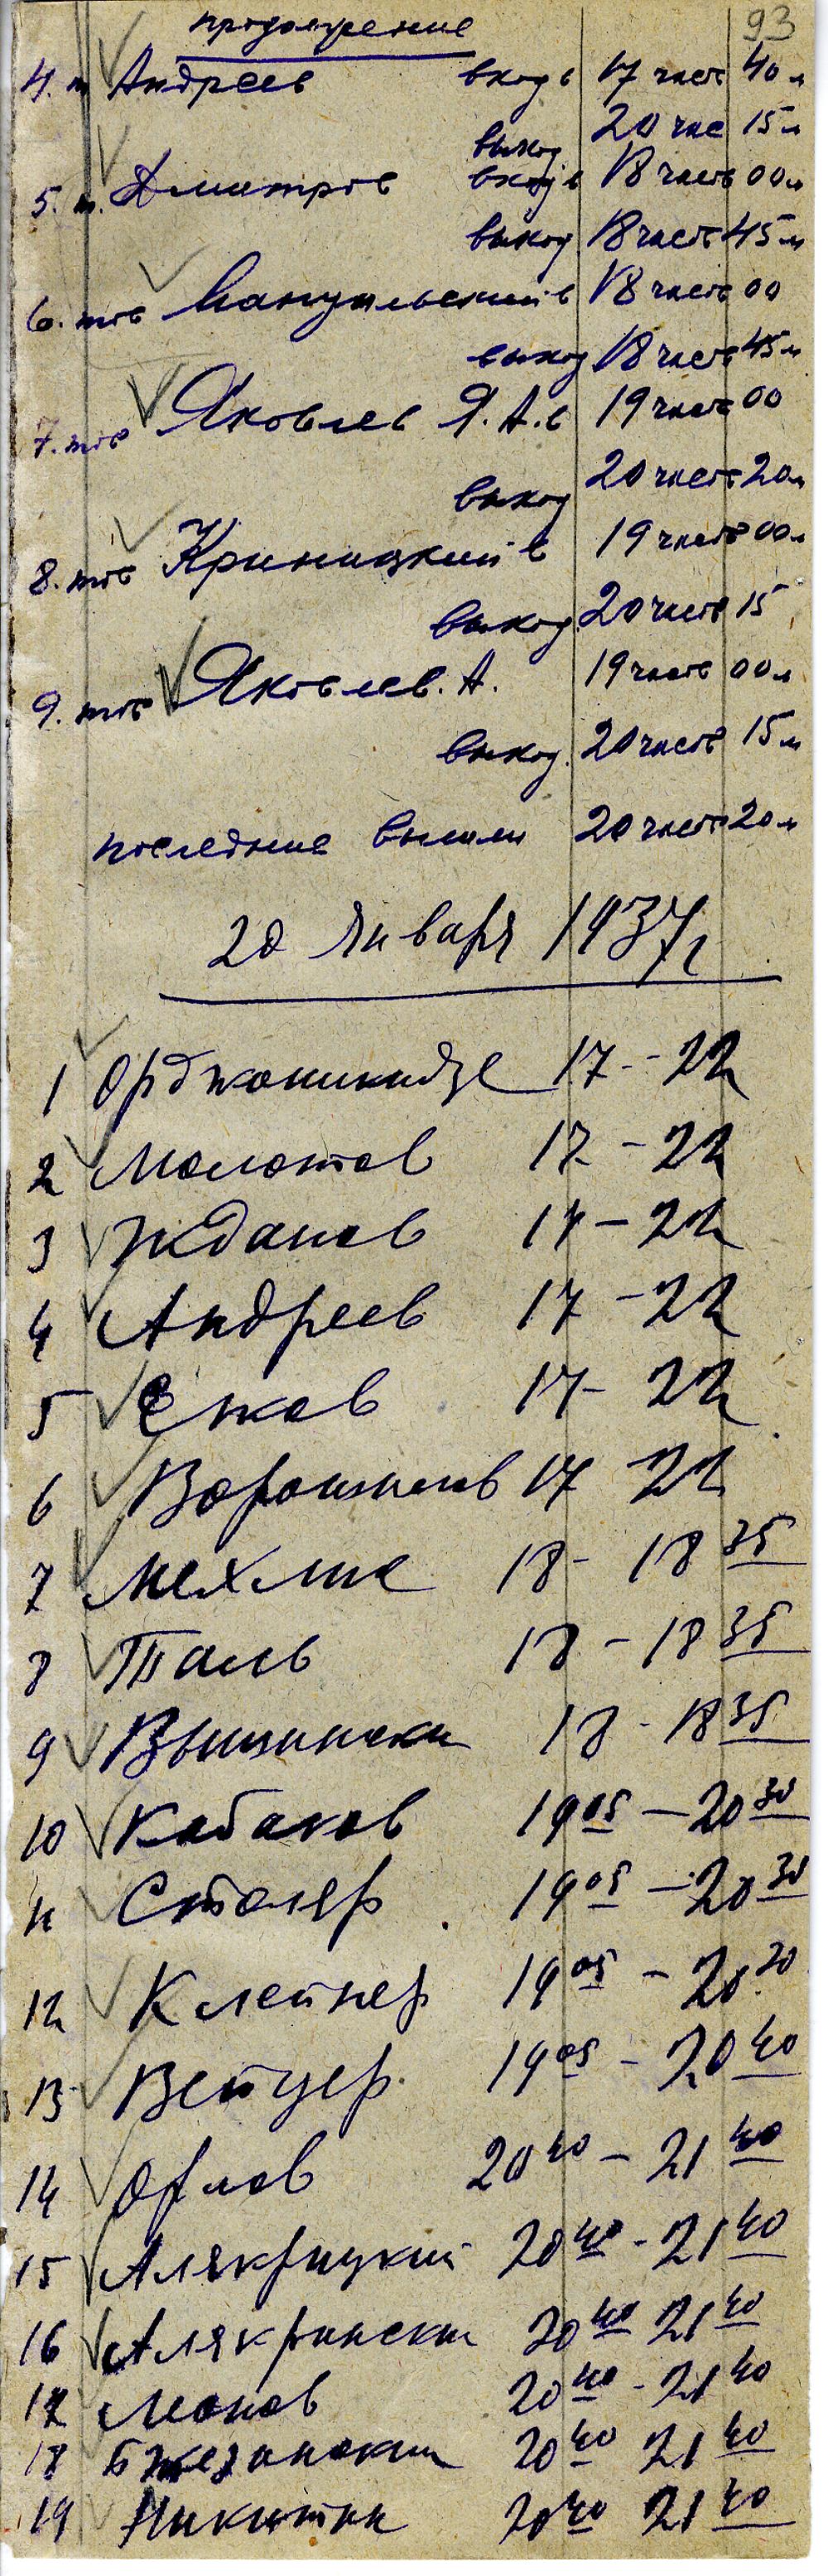 93
продолжение
4. т Андреев вход в 17 часов 40 м
выход 20 час 15 м
5. т. Димитров вход в 18 часов 00 м
выход 18 часов 45 м
6. тов Мануильский в 18 часов 00
выход 18 часов 45 м
7. тов Яковлев Я. А. в 19 часов 00
выход 20 часов 20 м
8. тов Криницкий в 19 часов 00 м
выход. 20 часов 15
9. тов Яковлев. А. 19 часов 00 м
выход. 20 часов 15 м
последние вышли 20 часов 20 м
20 января 1937 г
1 Орджоникидзе 17 - 22
2 Молотов 17 - 22
3 Жданов 17 - 22
4 Андреев 17 - 22
5 Ежов 17 - 22
6 Ворошилов 17 22
7 Мехлис 18 - 18 35
8 Таль 18 - 18 35
9 Вышински 18 - 18 35
10 Кабаков 19 05 - 20 30
11 Столяр 19 05 - 20 30
12 Клейнер 19 05 - 20 20
13 Вейцер 19 05 - 20 40
14 Орлов 20 40 - 21 40
15 Алякрицкий 20 40 - 21 40
16 Алякрински 20 40 21 40
17 20 40 - 21 40
18 Бжезински 20 40 21 40
19 Никитин 20 40 21 40